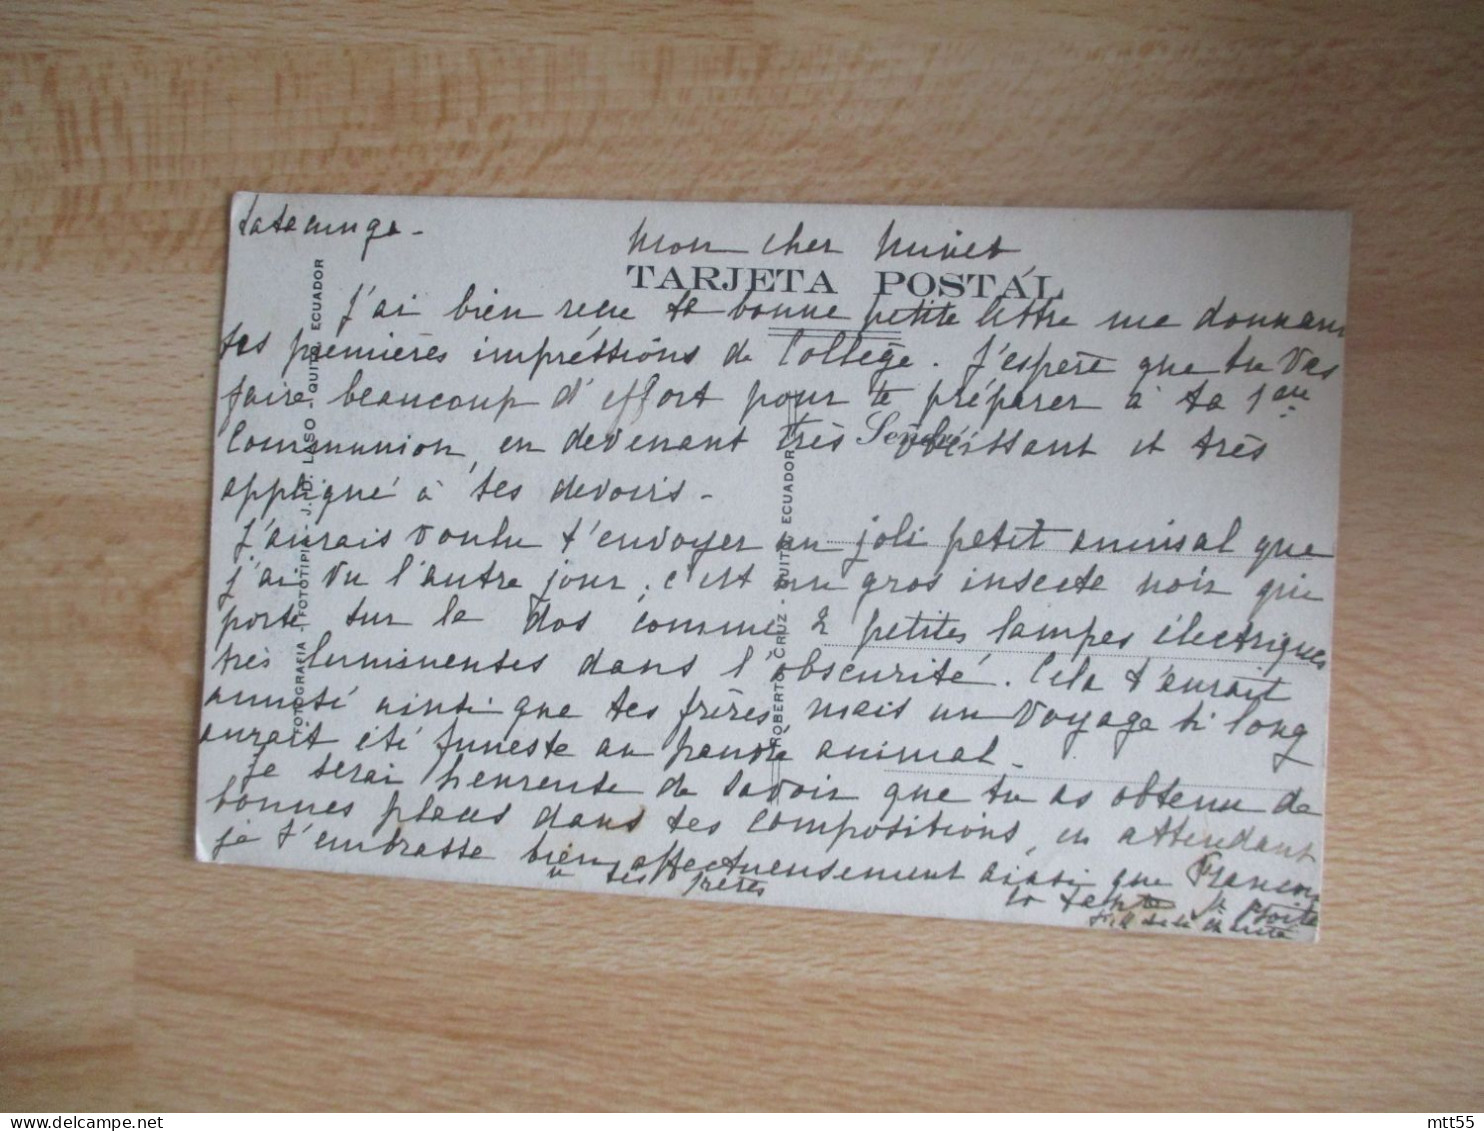 Latacunga -
Mon cher Minet
TARJETA POSTAL
J'ai bien reçu ta bonne petite lettre me donnant
tes premières impréssions de Collège. J'espère que tu vas
faire beaucoup d'effort pour te préparer à ta 1ère
Communion, en devenant très obéissant et très
appliqué à tes devoirs -
J'aurais voulu t'envoyer un joli petit animal que
j'ai vu l'autre jour, c'est un gros insecte noir qui
porte sur le dos comme 2 petites lampes électriques
très lumineuses dans l'obscurité. Cela t'aurait
amusé ainsi que tes frères mais un voyage si long
aurait été funeste au pauvre animal -
Je serai heureuse de savoir que tu as obtenu de
bonnes places dans tes compositions, en attendant
je t'embrasse bien affectueusement ainsi que François
et tes frères
ta tante
fille de la charité
FOTOGRAFIA - FOTOTIPIA - J. D. LASO - QUITO, ECUADOR
ROBERTO CRUZ - QUITO - ECUADOR
mtt55